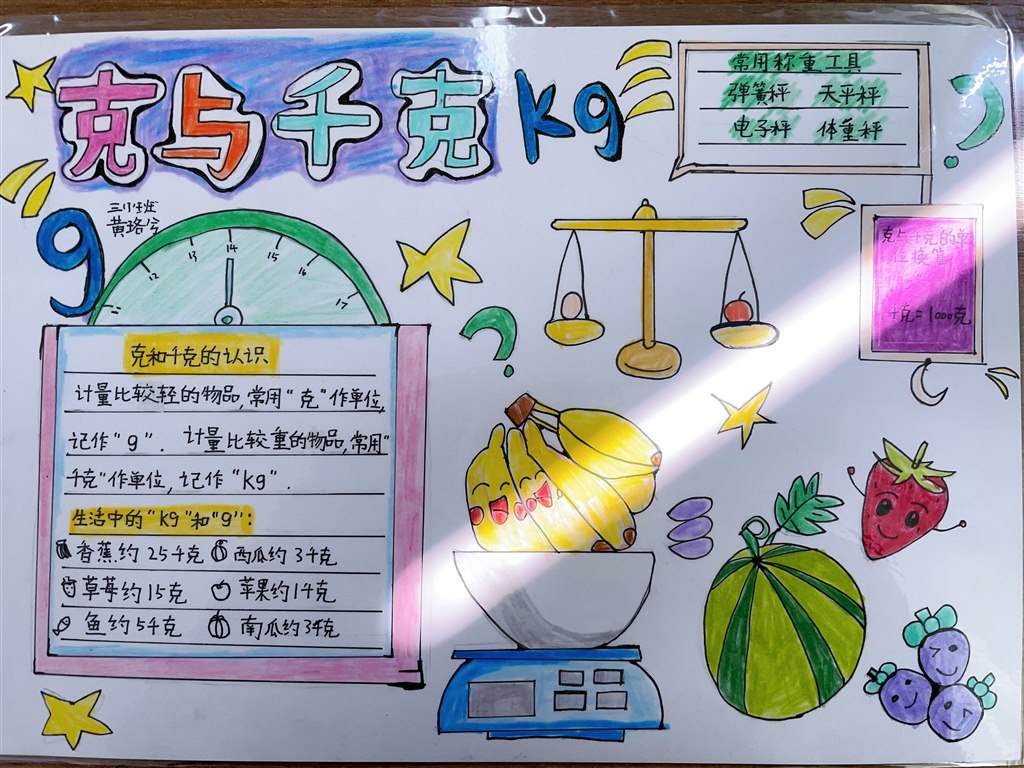 克与千克 kg
常用称重工具
弹簧秤 天平秤
电子秤 体重秤
g
黄珞兮
11 12 13 14 15 16 17
克与千克的单
位换算
千克=1000克
克和千克的认识
计量比较轻的物品,常用"克"作单位,
记作"g". 计量比较重的物品,常用"
千克"作单位,记作"kg".
生活中的"kg"和"g":
香蕉约25千克 西瓜约3千克
草莓约15克 苹果约1千克
鱼约5千克 南瓜约3千克